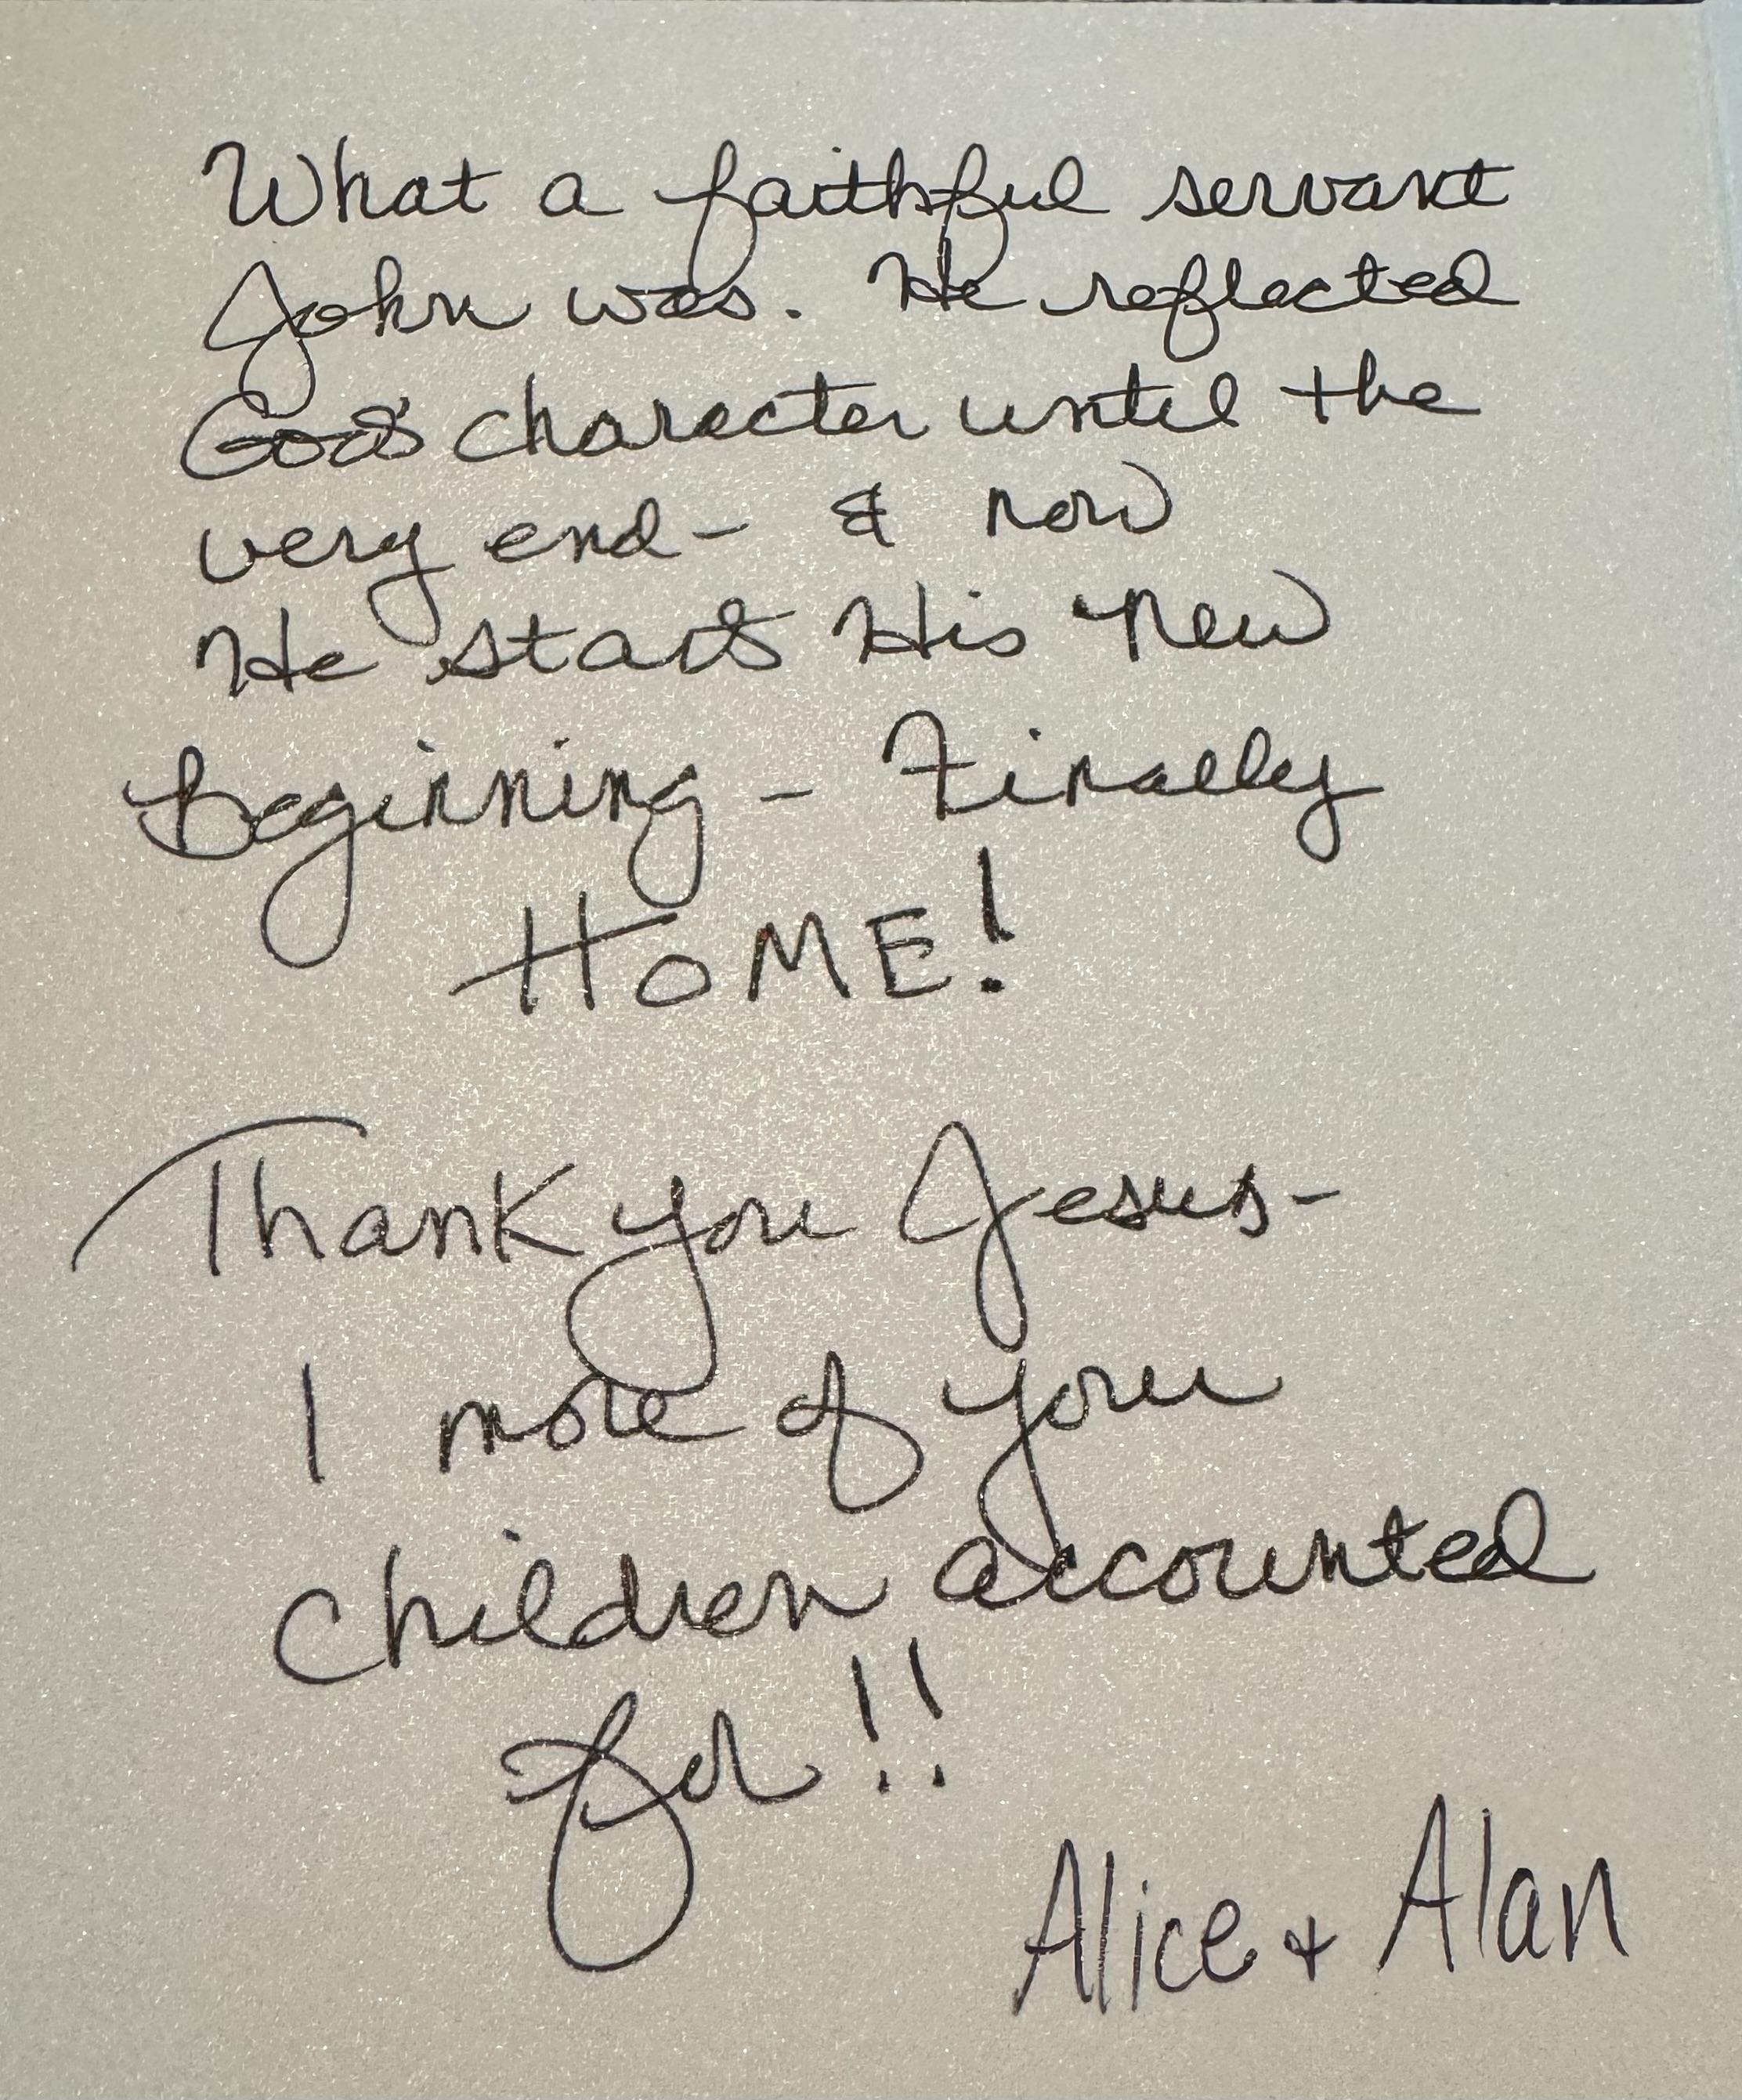 What a faithful servant
John was. He reflected
God's character until the
very end - & now
He starts His new
Beginning - Finally
HOME!
Thank you Jesus -
1 more of your
children accounted
for!!
Alice + Alan